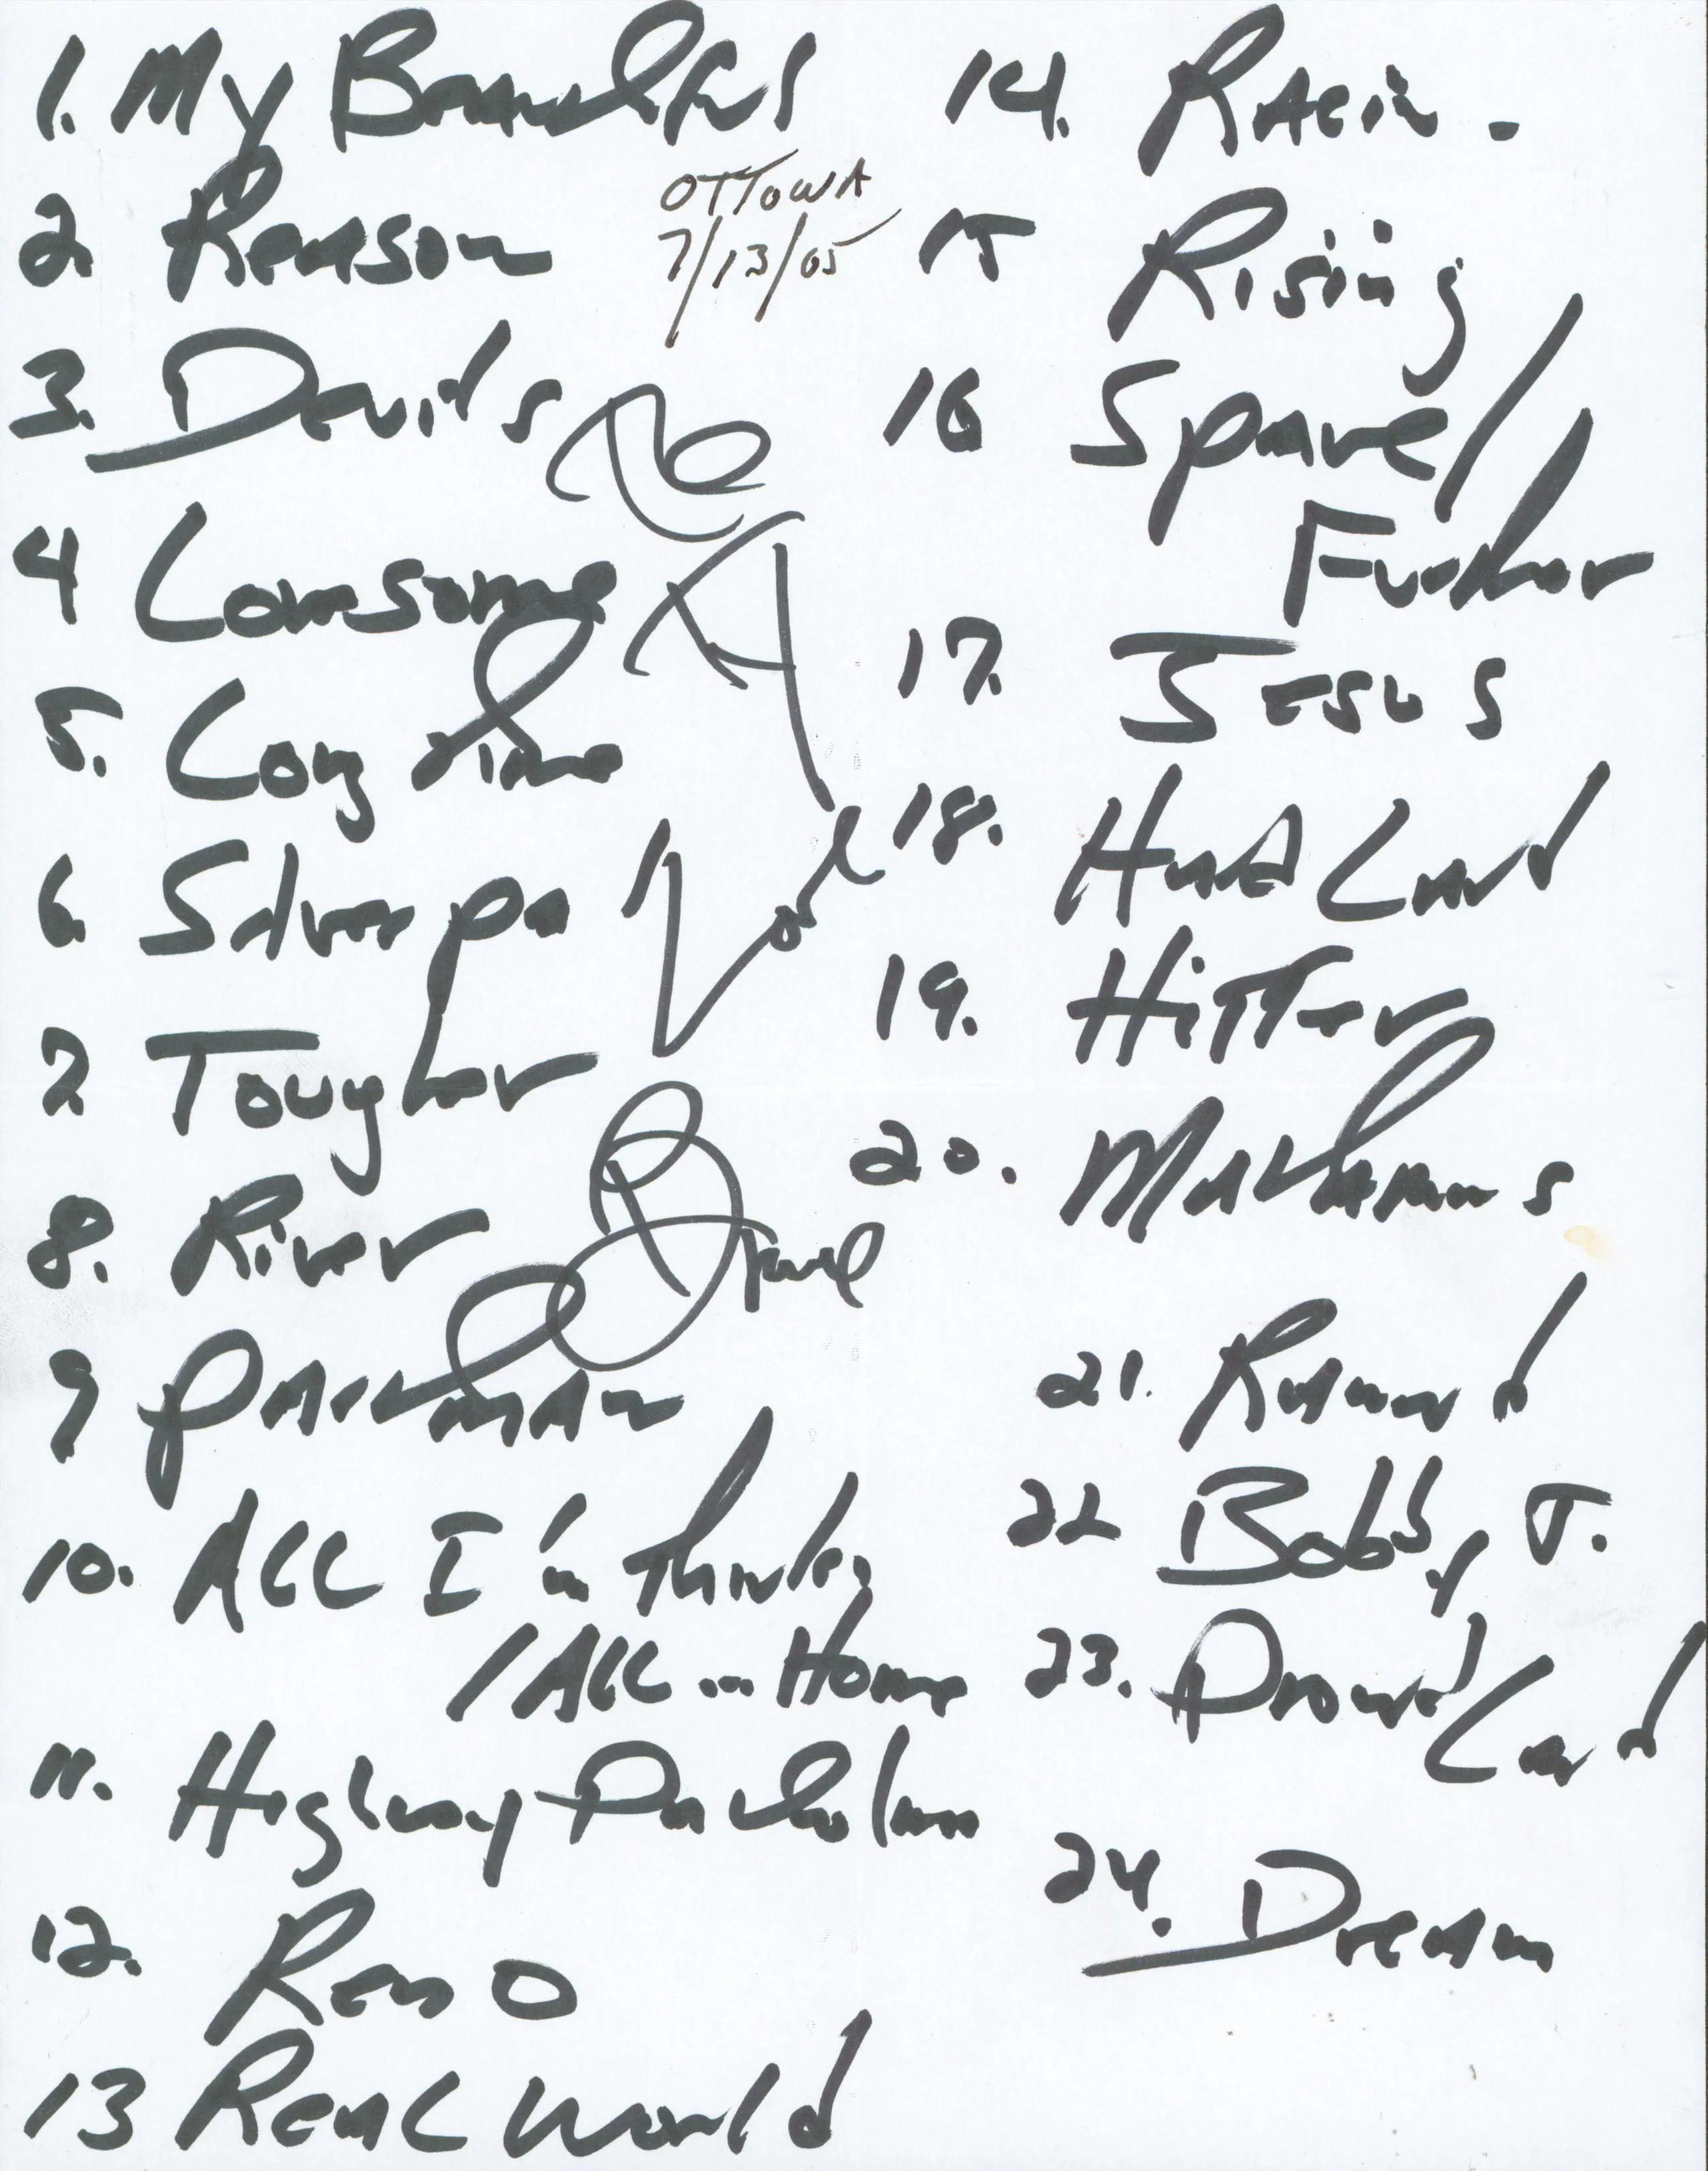 1. My Beautiful
OTTOWA
7/13/05
2. Reason
3. Devils
4 Lonesome
5. Long time
6. Silver pa
7 Tougher
8. River
9 PARKMAN
10. ALL I'm Thinkin
/ ALL ... Home
11. Highway Patrolman
12. Reno
13 REAL World
14. RACIN.
15 Rising
16 Spare/
Further
17. JESUS
18. Land
19. Hitter
20. Matamoros
21. 
22 Bobby J.
23. Land
24. Dream